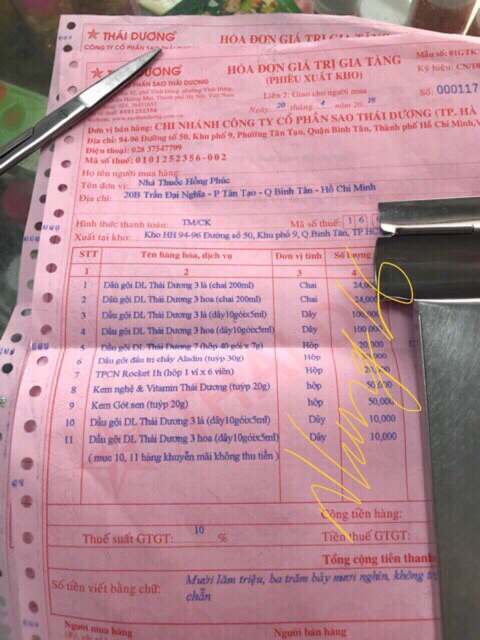 THÁI DƯƠNG HÓA ĐƠN GIÁ TRỊ GIA TĂNG
CÔNG TY CỔ PHẦN SAO THÁI DƯƠNG
THÁI DƯƠNG HÓA ĐƠN GIÁ TRỊ GIA TĂNG Mẫu số: 01GTK
CÔNG TY CỔ PHẦN SAO THÁI DƯƠNG (PHIẾU XUẤT KHO) Ký hiệu: CN/18
Liên 2: Giao cho người mua Số: 000117
Ngày 20 tháng 4 năm 2018
Đơn vị bán hàng: CHI NHÁNH CÔNG TY CỔ PHẦN SAO THÁI DƯƠNG (TP. HÀ
Địa chỉ: 94-96 Đường số 50, Khu phố 9, Phường Tân Tạo, Quận Bình Tân, Thành phố Hồ Chí Minh,
Điện thoại: 028 37547799
Mã số thuế: 0101252356-002
Họ tên người mua hàng:
Tên đơn vị: Nhà Thuốc Hồng Phúc
Địa chỉ: 20B Trần Đại Nghĩa - P Tân Tạo - Q Bình Tân - Hồ Chí Minh
Hình thức thanh toán: TM/CK Mã số thuế: 1 6
Xuất tại kho: Kho HH 94-96 Đường số 50, Khu phố 9, Q Bình Tân, TP HC
STT Tên hàng hóa, dịch vụ Đơn vị tính Số lượng
1 2 3 4
1 Dầu gội DL Thái Dương 3 lá (chai 200ml) Chai 24,000
2 Dầu gội DL Thái Dương 3 hoa (chai 200ml) Chai 24,000
3 Dầu gội DL Thái Dương 3 lá (dây10góix5ml) Dây 100,000
4 Dầu gội DL Thái Dương 3 hoa (dây10góix5ml) Dây 100,000
5 Dầu gội DL Thái Dương 7 (hộp 40 gói x 7g) Hộp 20,000
6 Dầu gội đầu trị chấy Aladin (tuýp 30g) Hộp
7 TPCN Rocket 1h (hộp 1 vỉ x 6 viên) Hộp
8 Kem nghệ & Vitamin Thái Dương (tuýp 20g) hộp 50,000
9 Kem Gót sen (tuýp 20g) hộp 50,000
10 Dầu gội DL Thái Dương 3 lá (dây10góix5ml) Dây 10,000
11 Dầu gội DL Thái Dương 3 hoa (dây10góix5ml) Dây 10,000
( mục 10, 11 hàng khuyến mãi không thu tiền )
Cộng tiền hàng:
Thuế suất GTGT: 10 % Tiền thuế GTGT:
Tổng cộng tiền thanh
Số tiền viết bằng chữ: Mười lăm triệu, ba trăm bảy mươi nghìn, không
chẵn
Người mua hàng Người bán hàng